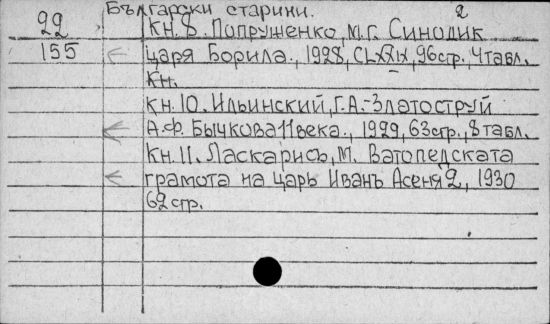 Български старини. 2
22 Кн. 8. Попруженко, М.Г. Синодик
155 царя Борила., 1928, CLXXIX, 96стр., 4табл.
Кн.
Кн. 10. Ильинский, Г.А.-Златоструй
А.Ф. Бычкова 11века., 1929, 63стр., 8табл.
Кн. 11. Ласкарисъ, М. Ватопедската
грамота на царь Иванъ Асеня 2, 1930
62 стр.